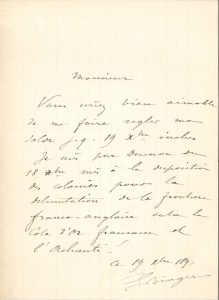 Monsieur
Vous seriez bien aimable
de me faire regler ma
solde j.q. 19 Xbre inclus
Je suis par Decision du
18 Xbre mis à la disposition
des colonies pour la
delimitation de la frontiere
franco-anglaise entre la
Cote d'Or francaise et
l'Achanti.
ce 19 Xbre 189
Binger